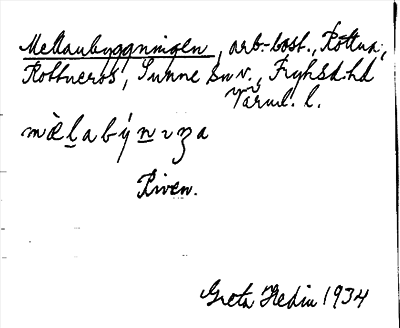 Mellanbyggningen, arb.-bost., Rottna,
Rottneros, Sunne sn., Fryksd. hd
Värml. l.
mæ̀l̲abýn̲ɩʒa
Riven.
Greta Hedin 1934